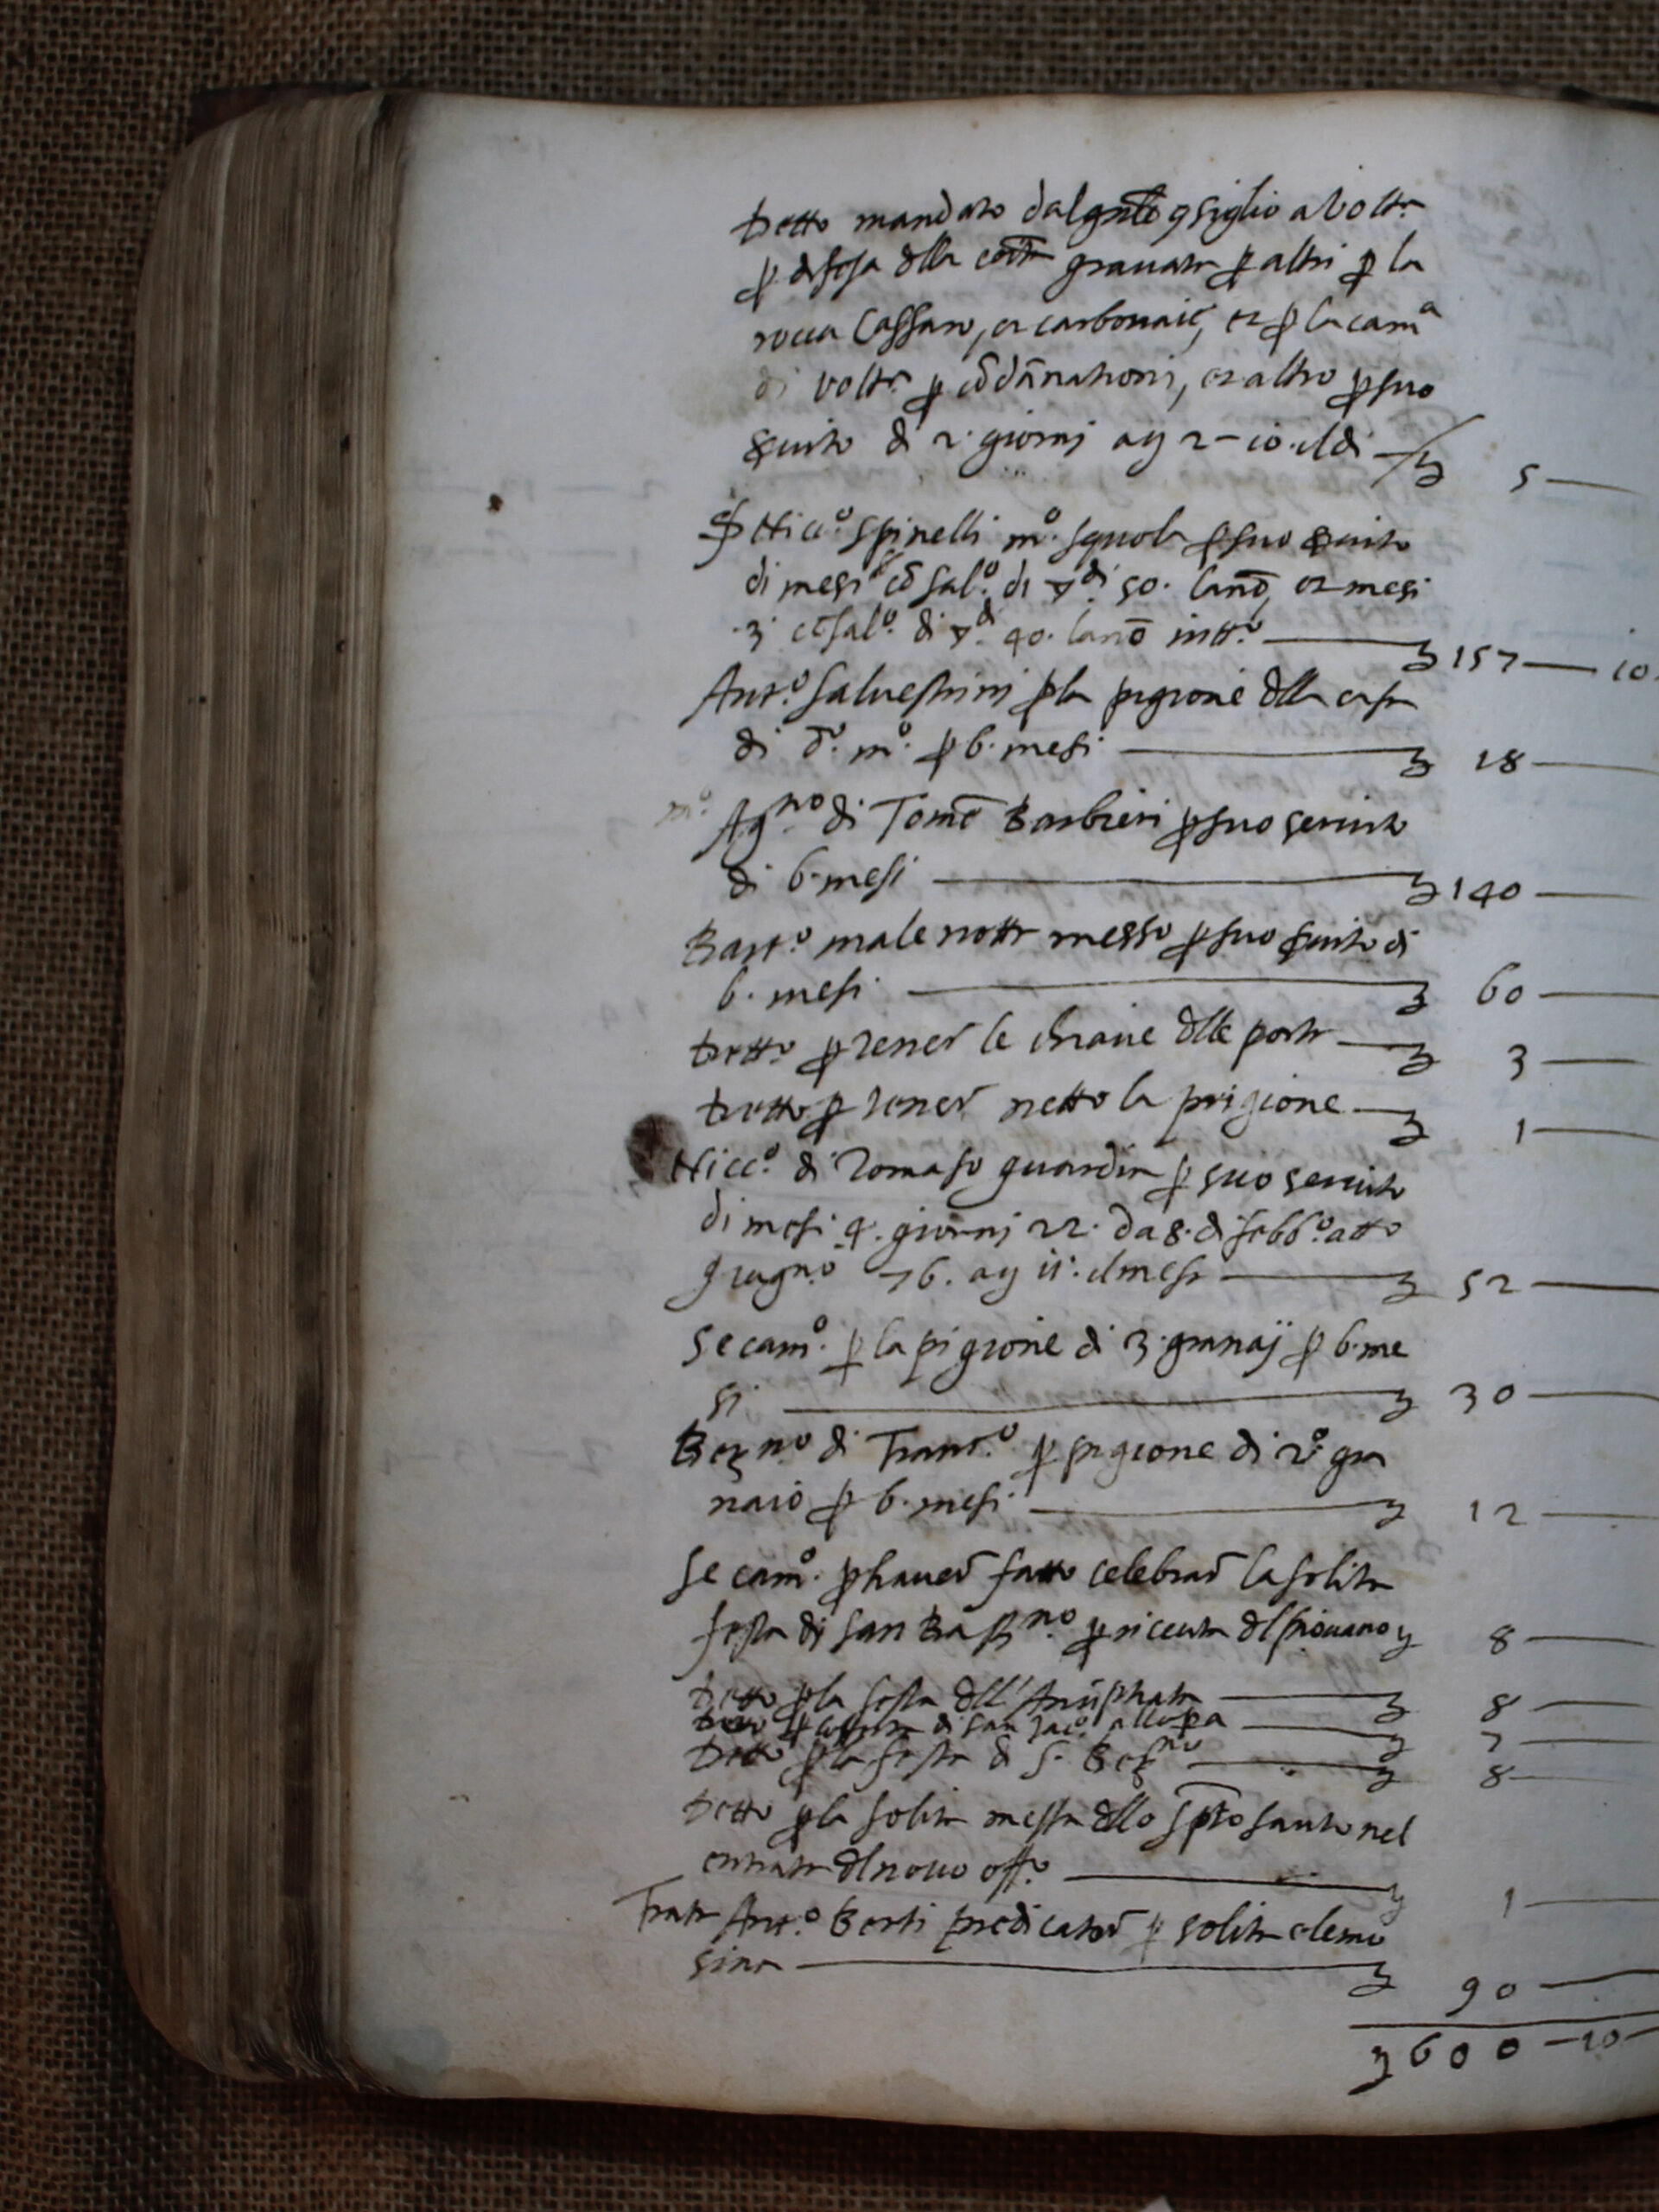 Detto mandato dal gnle ɔsiglio a Volta
ꝑ difesa dlla cōita gravata ꝑ altri ꝑ la
rocca Cassaro, et carbonaie, et ꝑ la camª
di Volta ꝑ cōdānationi, et altro ꝑ suo
servito di 2 giorni a ₤ 2–10 il dì ₤ 5
Sʳ Niccº Spinelli mº squola ꝑ suo servito
di mesi cō salº di ▽di 50. lanō, et mesi
3 cō salº di ▽di 40. lanō in ttº ₤ 157 — 10
Antº Salvestrini ꝑ la pigione dlla casa
di dº mº ꝑ 6. mesi ₤ 18
mº Agⁿº di Tomē Barbieri ꝑ suo servito
di 6. mesi ₤ 140
Bartº male notti messo ꝑ suo servito di
6. mesi ₤ 60
Detto ꝑ tener le chiave dlle porte ₤ 3
Detto ꝑ tener netto la prigione ₤ 1
Niccº di Tomaso guardia ꝑ suo servito
di mesi 4. giorni 22. da 8. di febbº a tto
giugnº 76. a ₤ 11. il mese ₤ 52
Se camº ꝑ la pigione di 3 granaij ꝑ 6 me
si ₤ 30
Berⁿº di Francº ꝑ pigione di 2º gra
naio ꝑ 6. mesi ₤ 12
Se camº ꝑ haver fatto celebrar la solita
festa di San Bastⁿº ꝑ ricevuta dl piovano ₤ 8
Detto ꝑ la festa dll' ₤ 8
Detto ꝑ di San Jacº ₤ 7
Detto ꝑ la festa di S. Berⁿº ₤ 8
Detto ꝑ la solita messa dllo Spto Santo nel
entrata dl novo offº ₤ 1
Frate Antº Berti predicator ꝑ solita elemo
sina ₤ 90
₤ 600 – 10 –